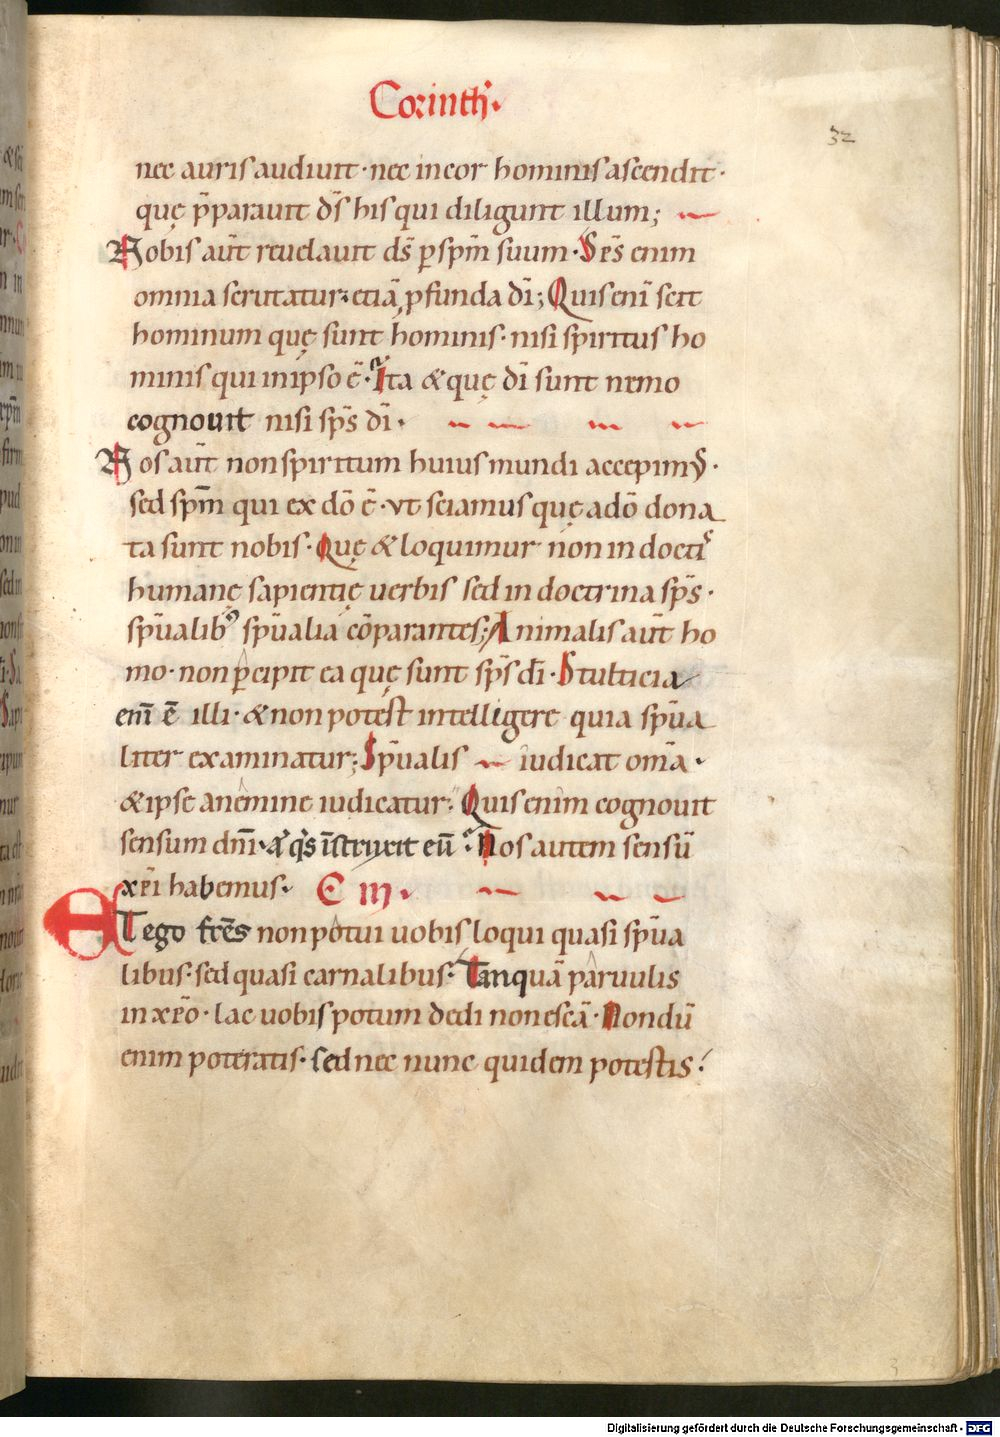 Corinth᷒.
32
nec auris audiuit · nec in cor hominis ascendit ·
quę p̄parauit ds̄ his qui diligunt illum;
Nobis aūt reuelauit ds̄ ꝑ spm̄ suum · Sps̄ enim
omnia scrutatur: etiā ꝓfunda dī; Quis enī scit
hominum quę sunt hominis · nisi spiritus ho
minis qui in ipso ē · Ita & quę dī sunt nemo
cognouit nisi sps̄ dī ·
Nos aūt non spiritum huius mundi accepimꝰ ·
sed spm̄ qui ex dō ē · vt sciamus quę a dō dona
ta sunt nobis · Quę & loquimur non in docti
humanę sapientię uerbis sed in doctrina sps̄ ·
sp̄ualibꝰ sp̄ualia cōparantes; Animalis aūt ho
mo · non ꝑcipit ea quę sunt sps̄ dī · Stulticia
em̄ ē illi · & non potest intelligere quia sp̄ua
liter examinatur; Sp̄ualis iudicat om̄a ·
& ipse a nemine iudicatur · Quis enim cognouit
sensum dnī · aͭ qͥs īstruxit eū · Nos autem sensū
xp̄i habemus · C III .
ET ego frēs non potui uobis loqui quasi sp̄ua
libus · sed quasi carnalibus · Tanquā paruulis
in xp̄o · lac uobis potum dedi non escā · Nondū
enim poteratis · sed nec nunc quidem potestis ·
3
Digitalisierung gefördert durch die Deutsche Forschungsgemeinschaft - DFG